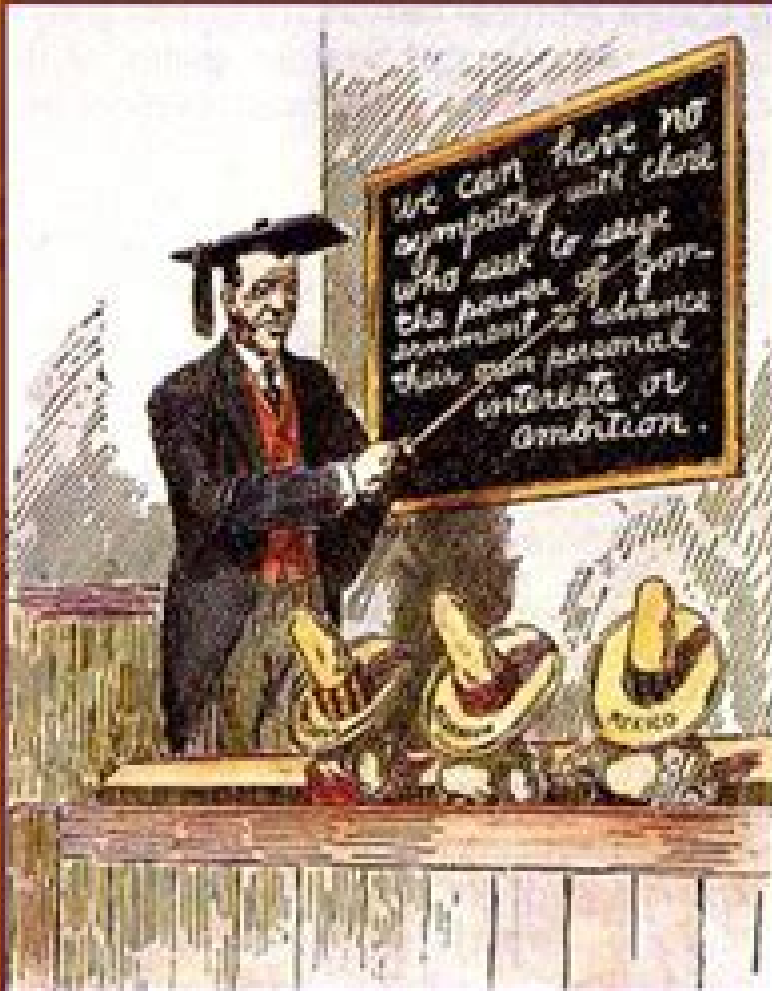 We can have no
sympathy with those
who seek to seize
the power of gov-
ernment to advance
their own personal
interests or
ambition.
MEXICO